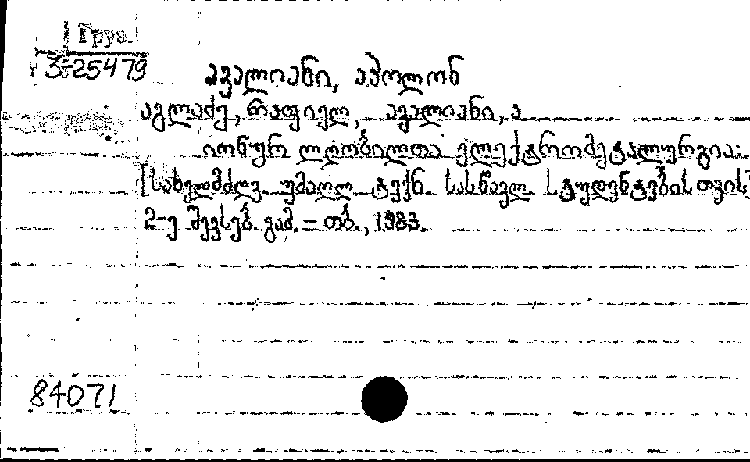 Груз.
3-25479
ავალიანი, აპოლონ
აგლაძე, რაფიელ, ავალიანი, ა
იონურ ლღობილთა ელექტრომეტალურგია:
[სახელმძღვ. უმაღლ. ტექნ. სასწავლ. სტუდენტებისთვის]
2-ე შევსებ. გამ. – თბ., 1983.
84071